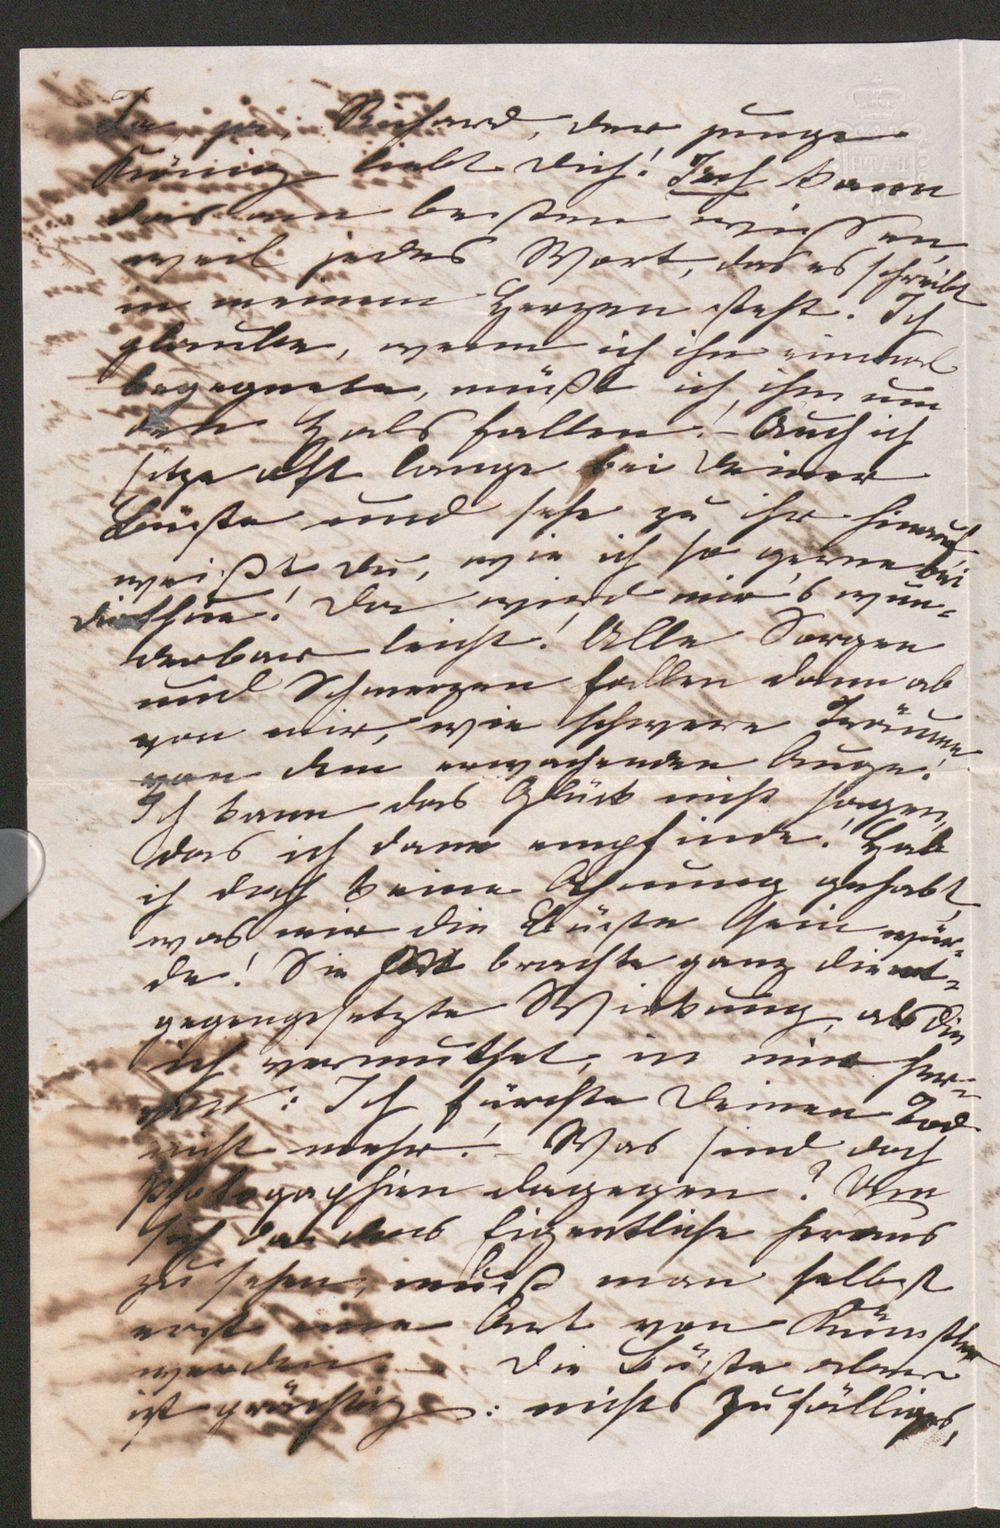 Ja, ja, Richard, der junge
König liebt Dich! Ich kann
das am besten wissen,
weil jedes Wort, das er schreibt
in meinem Herzen steht. Ich
glaube, wenn ich ihm einmal
begegnete, müßt ich ihm um
den Hals fallen! – Auch ich
sitze oft lange bei Deiner
Büste und sehe zu ihr hinauf
weißt Du, wie ich so gerne bei
Dir thue! Da wird mir's wun-
derbar leicht! Alle Sorgen
und Schmerzen fallen dann ab
von mir, wie schwere Träume
von dem erwachenden Auge!
Ich kann das Glück nicht sagen,
das ich dann empfinde! Hab
ich doch keine Ahnung gehabt,
was mir die Büste sein wür-
de! Sie brachte ganz die ent-
gegengesetzte Wirkung, als die
ich vermuthet, in mir her-
vor: Ich fürchte Deinen Tod
nicht mehr! – Was sind doch
Photogaphien dagegen? Um
sich da das Eigentliche heraus
zu sehen, muß man selbst
erst eine Art von Künstler
werden. Die Büste aber
ist prächtig: nichts Zufälliges,